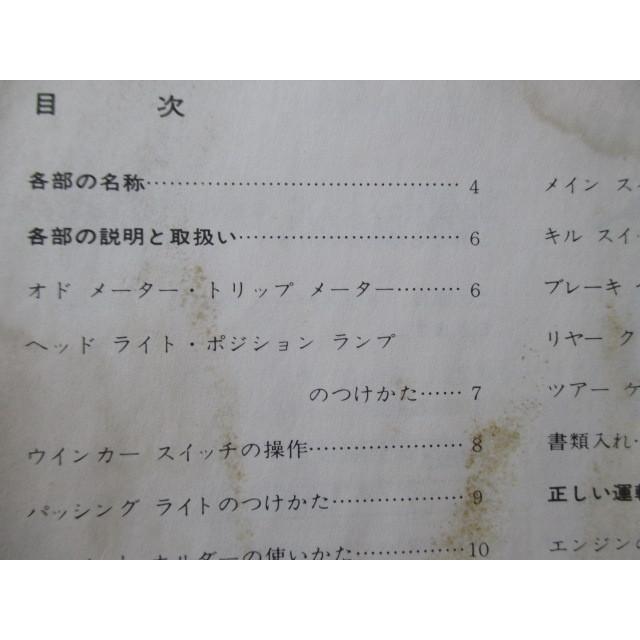 目 次
各部の名称……………………………………4
各部の説明と取扱い…………………………6
オド メーター・トリップ メーター………6
ヘッド ライト・ポジション ランプ
のつけかた……7
ウインカー スイッチの操作…………………8
パッシング ライトのつけかた………………9
ホルダーの使いかた……………10
メイン
キル スイ
ブレーキ
リヤー ク
ツアー
書類入れ
正しい運転
エンジンの